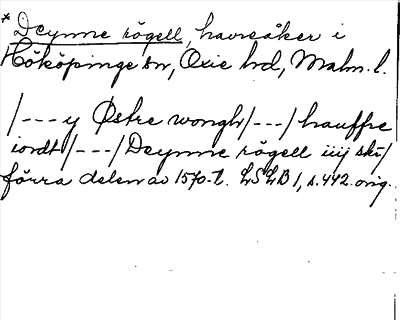 * Deynne rögell, havreåker i
Hököpinge sn, Oxie hd, Malm. l.
/---y Østre wongh/---/hauffre
iordt/---/Deynne rögell iiij ski/
förra delen av 1570-t. LSLB 1, s. 442. orig.